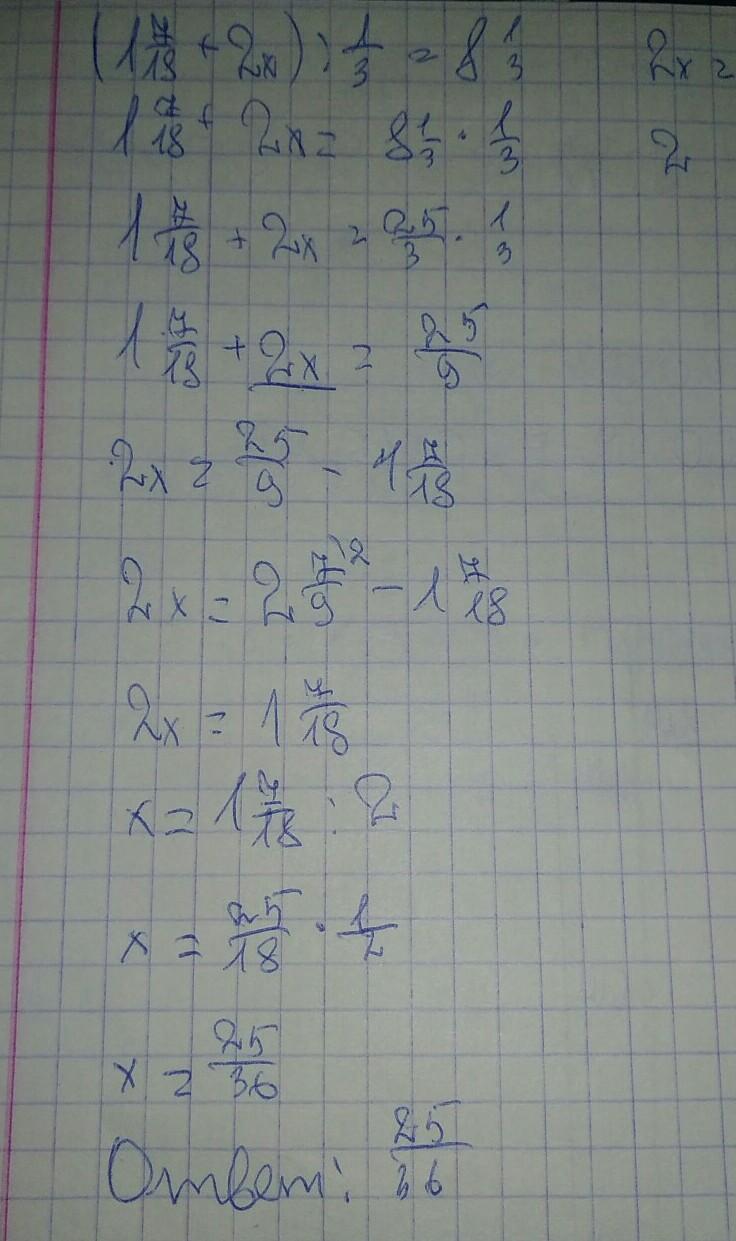 (1 7/18 + 2x) : 1/3 = 8 1/3
1 7/18 + 2x = 8 1/3 · 1/3
1 7/18 + 2x = 25/3 · 1/3
1 7/18 + 2x = 25/9
2x = 25/9 - 1 7/18
2x = 2 7/9 ⁾² - 1 7/18
2x = 1 7/18
x = 1 7/18 : 2
x = 25/18 · 1/2
x = 25/36
Ответ: 25/36
2x =
2